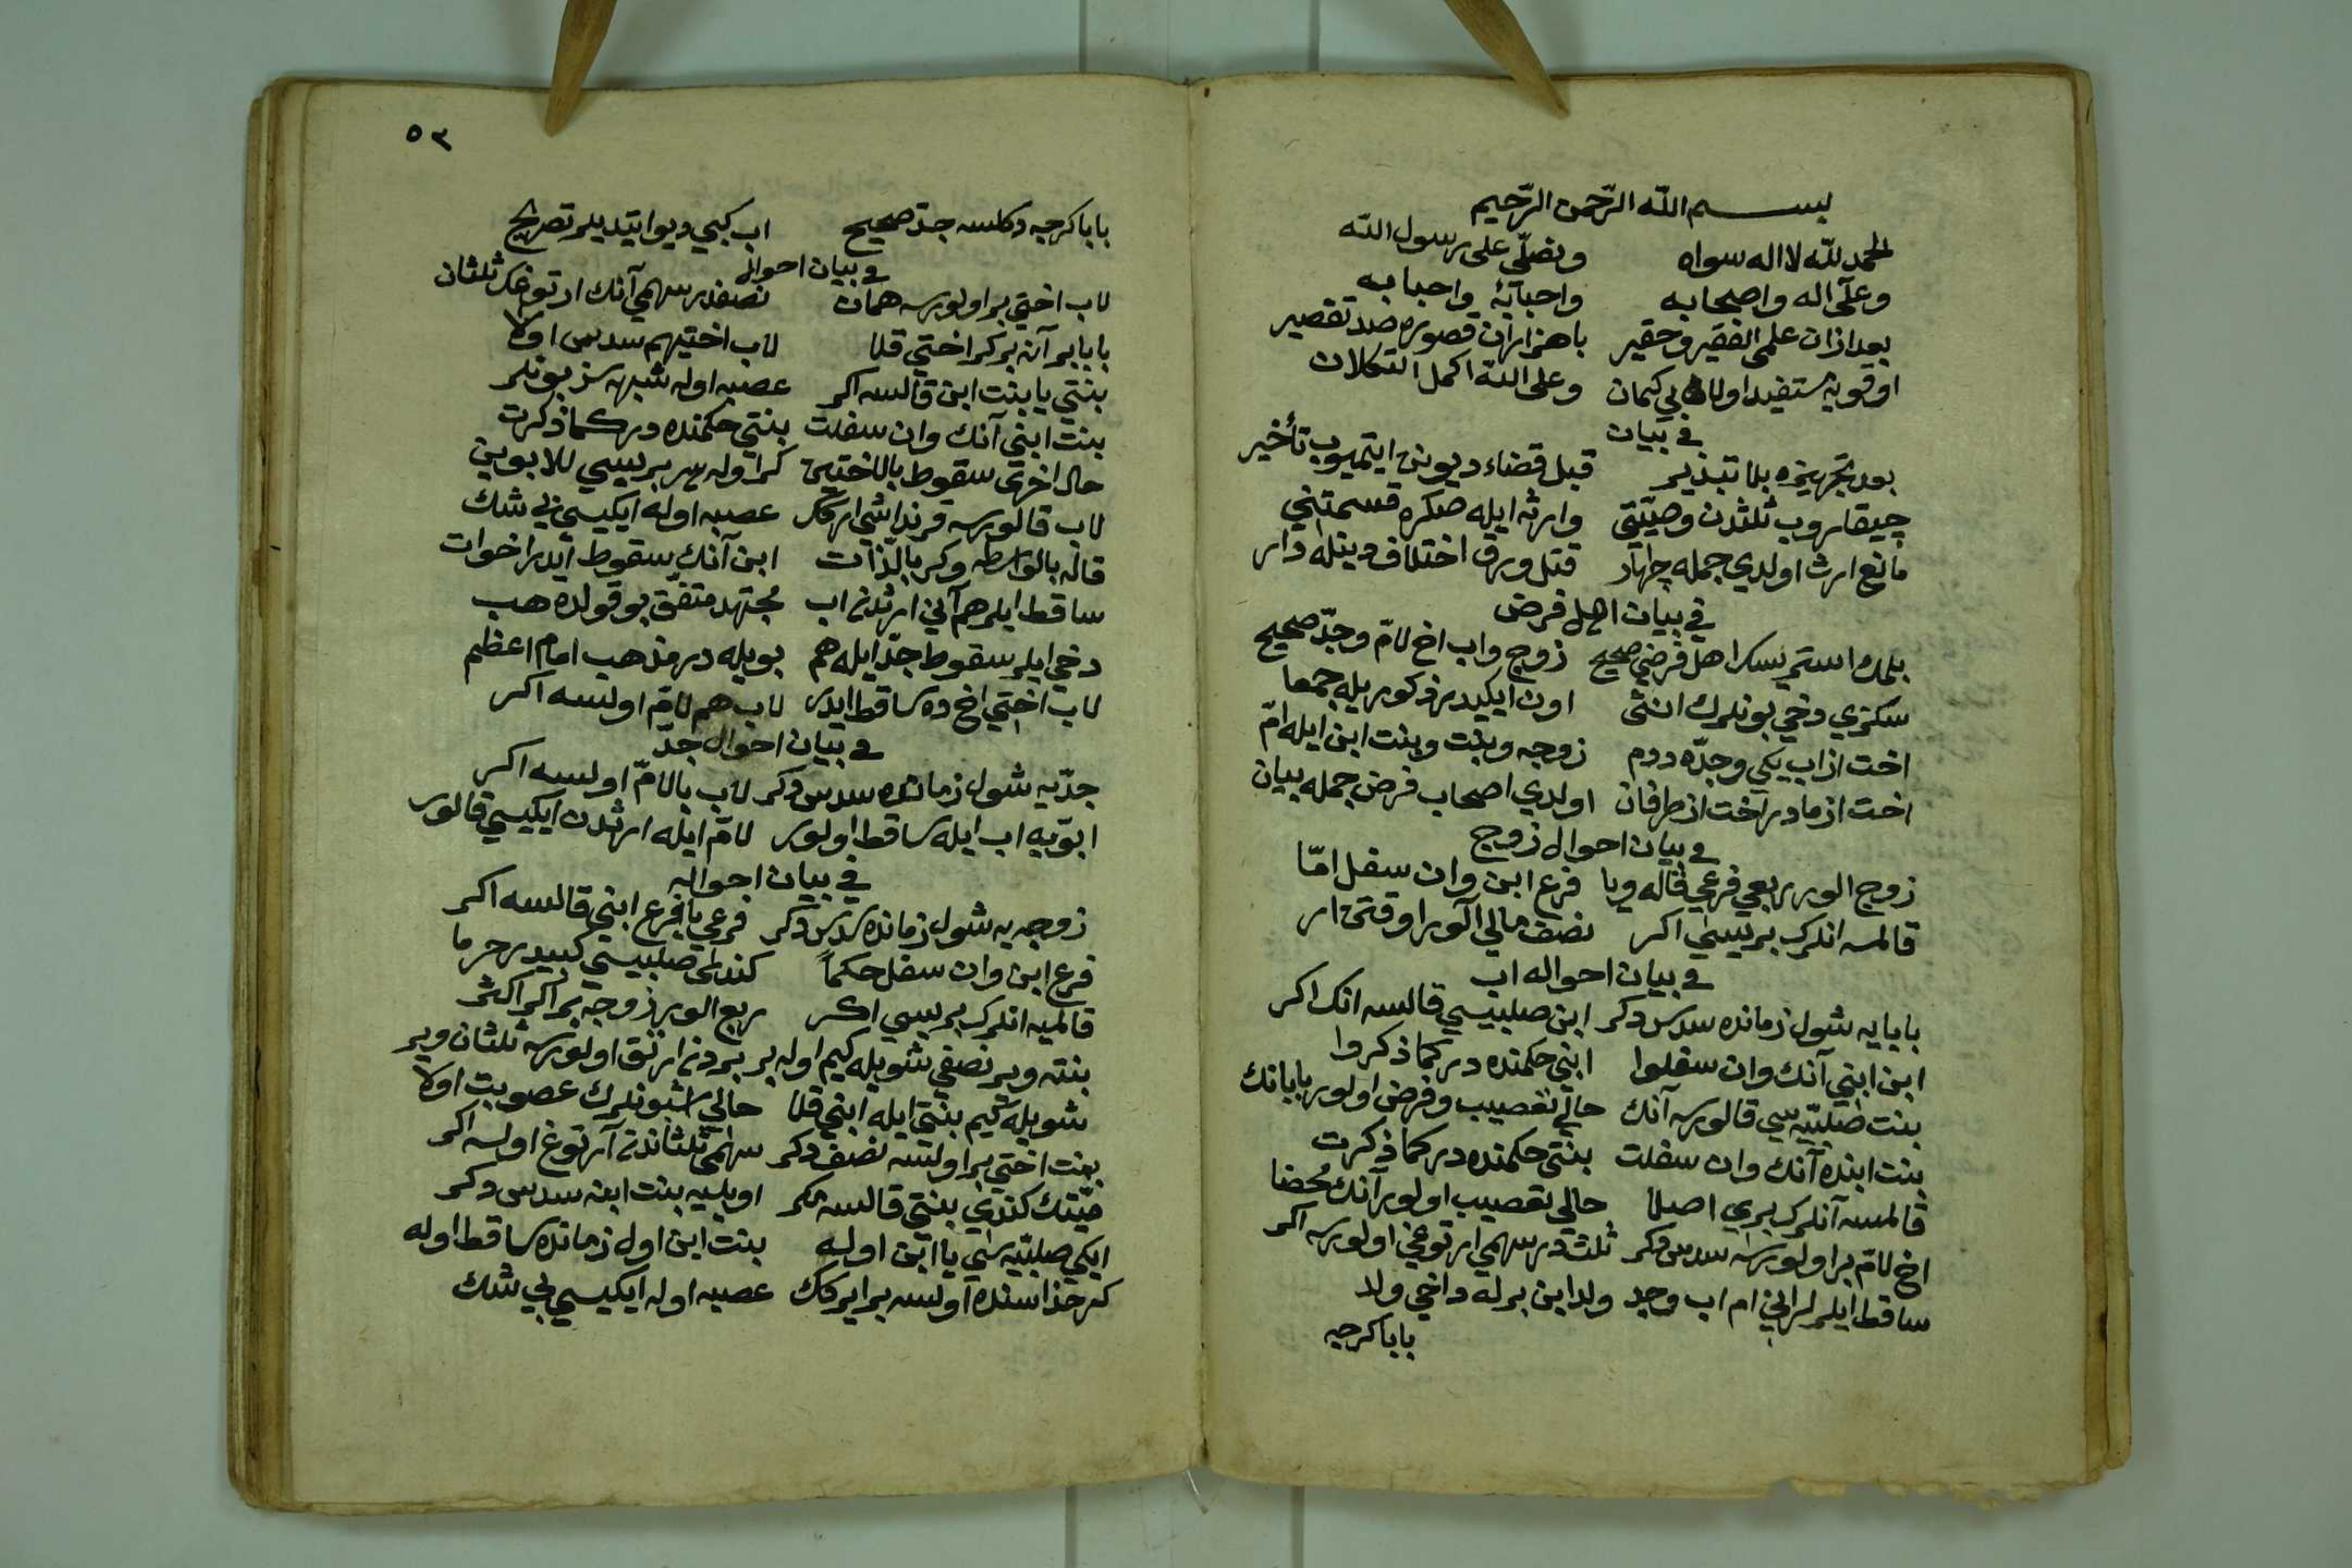 بســـم الله الرّحمن الرّحيم
الحمد لله لا اله سواه ونصلّي على رسول الله
وعلى اله واصحابه واحبائه واحبابه
بعد ازان علمى الفقير وحقير باهزاران قصور صد تقصير
اوقويه مستفيد اولا بي كمان وعلى الله اكمل التكلان
في بيان
بعد تجهيزه بلا تبذير قبل قضاء ديون ايتميوب تأخير
چيقاروب ثلثدن وصيّتى وارثه ايله صكره قسمتني
مانع ارث اولدي جمله چهار قتل ورق اختلاف دينله دار
في بيان اهل فرض
بلمك استرسك اهل فرضي صحيح زوج واب اخ لامّ وجدّ صحيح
سكزي دخي بونلرك انثى اون ايكيدر ذكور يله جمعا
اخت از اب يكي وجدّه دوم زوجه وبنت وبنت ابن ايله امّ
اخت از مادر اخت از طرفان اولدي اصحاب فرض جمله بيان
في بيان احوال زوج
زوج الور ربعي فرعي قاله ويا فرع ابن وان سفل امّا
قالمسه انلرك بريسي اكر نصف مالي آلور اوقتى ار
في بيان احواله اب
بابايه شول زمانده سدس دكر ابن صلبيسي قالسه انك اكر
ابن ابني آنك وان سفلوا ابني حكمنده در كما ذكروا
بنت صلبيّه سي قالورسه آنك حالي تعصيب وفرض اولور بابانك
بنت ابنده آنك وان سفلت بنتى حكمنده در كما ذكرت
قالمسه آنلرك بري اصلا حالي تعصيب اولور آنك محضا
اخ لامّ بر اولورسه سدس دكر ثلث در سهمي ارتوغي اولورسه اكر
ساقط ايلر لر اني ام اب وجد ولد ابن برله داخي ولد
بابا كرجه
٥٣
بابا كرجه دكلسه جدّ صحيح اب كبي ديو ايتديلر تصريح
في بيان احواله
لاب اختي بر اولورسه همان نصفدر سهمي آنك ارتوغك ثلثان
بابا بر آنه بر كر اختي قلا لاب اختيهم سدس اولا
بنتي يا بنت ابن قالسه اكر عصبه اوله شبهه سز بونلر
بنت ابني آنك وان سفلت بنتي حكمنده در كما ذكرت
حال اخرى سقوط بالاختين كر اوله هر بريسي للابوين
لاب قالورسه قرنداشي اركك عصبه اوله ايكيسي بي شك
قاله بالواسطه وكر بالذّات ابن آنك سقوط ايدر اخوات
ساقط ايلر هم آني ارثدن اب مجتهد متفق بو قولده هب
دخي ايلر سقوط جدّ ايله هم بويله در مذهب امام اعظم
لاب اختي اخ ده ساقط ايدر لاب هم لامّ اولسه اكر
في بيان احوال جدّ
جدّيه شول زمانده سدس دكر لاب يا لامّ اولسه اكر
ابوّيه اب ايله ساقط اولور لامّ ايله ارثدن ايكيسي قالور
في بيان احواله
زوجه يه شول زمانده سدس دكر فرعي يا فرع ابني قالسه اكر
فرع ابن وان سفل حكماً كندلى صلبيسي كبيدر حرما
قالميه انلرك بريسي اكر ربع الور زوجه بر اكر اكثر
بنته وير نصفي شويله كيم اوله بر بردن ارتق اولورسه ثلثان وير
شويله كيم بنتي ايله ابني قلا حالي اشبونلرك عصوبت اولا
بنت اختي بر اولسه نصف دكر سهمي ثلثاندن آرتوغ اولسه اكر
ميّتك كندي بنتي قالسه مكر اويليه بنت ابنه سدس دكر
ايكي صلبيّه سي يا ابن اوله بنت ابن اول زمانده ساقط اوله
كر حذاسنده اولسه بر ايركك عصبه اوله ايكيسي بي شك